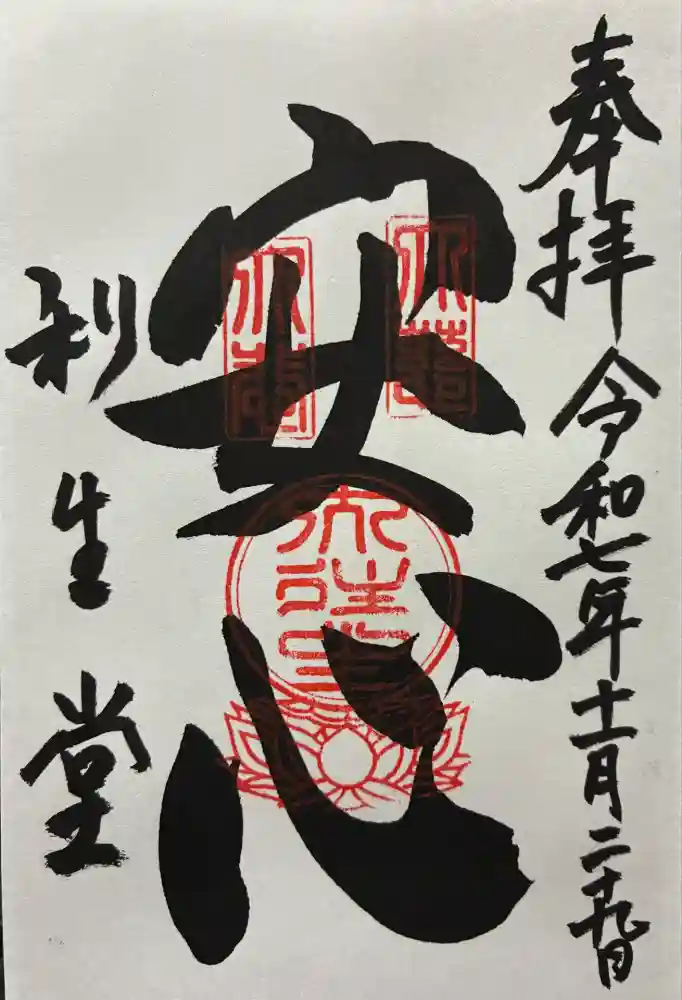 奉拝 令和七年十一月二十九日
安心
利生堂